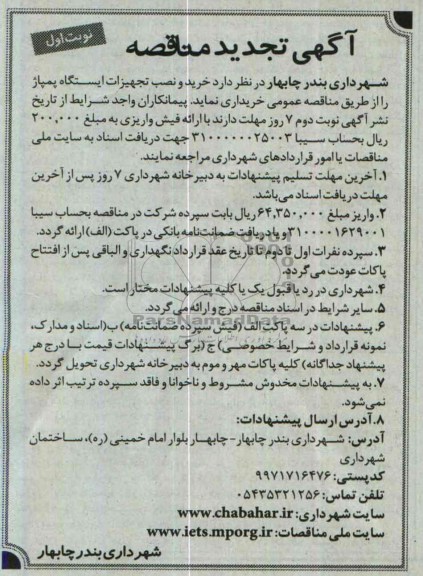 نوبت اول
آگهی تجدید مناقصه
شهرداری بندر چابهار در نظر دارد خرید و نصب تجهیزات ایستگاه پمپاژ
را از طریق مناقصه عمومی خریداری نماید. پیمانکاران واجد شرایط از تاریخ
نشر آگهی نوبت دوم ۷ روز مهلت دارند با ارائه فیش واریزی به مبلغ ۲۰۰,۰۰۰
ریال بحساب سیبا ۳۱۰۰۰۰۰۰۲۵۰۰۳ جهت دریافت اسناد به سایت ملی
مناقصات یا امور قراردادهای شهرداری مراجعه نمایند.
۱. آخرین مهلت تسلیم پیشنهادات به دبیرخانه شهرداری ۷ روز پس از آخرین
مهلت دریافت اسناد می‌باشد.
۲. واریز مبلغ ۶۴,۳۵۰,۰۰۰ ریال بابت سپرده شرکت در مناقصه بحساب سیبا
۳۱۰۰۰۰۱۶۲۹۰۰۱ و یا دریافت ضمانت‌نامه بانکی در پاکت (الف) ارائه گردد.
۳. سپرده نفرات اول تا دوم تا تاریخ عقد قرارداد نگهداری و الباقی پس از افتتاح
پاکات عودت می‌گردد.
۴. شهرداری در رد یا قبول یک یا کلیه پیشنهادات مختار است.
۵. سایر شرایط در اسناد مناقصه درج و ارائه می‌گردد.
۶. پیشنهادات در سه پاکت الف (فیش سپرده ضمانت‌نامه) ب (اسناد و مدارک،
نمونه قرارداد و شرایط خصوصی) ج (برگ پیشنهادات قیمت با درج هر
پیشنهاد جداگانه) کلیه پاکات مهر و موم به دبیرخانه شهرداری تحویل گردد.
۷. به پیشنهادات مخدوش مشروط و ناخوانا و فاقد سپرده ترتیب اثر داده
نمی‌شود.
۸. آدرس ارسال پیشنهادات:
آدرس: شهرداری بندر چابهار - چابهار بلوار امام خمینی (ره)، ساختمان
شهرداری
کدپستی: ۹۹۷۱۷۱۶۴۷۶
تلفن تماس: ۰۵۴۳۵۳۲۱۲۵۶
سایت شهرداری: www.chabahar.ir
سایت ملی مناقصات: www.iets.mporg.ir
شهرداری بندر چابهار